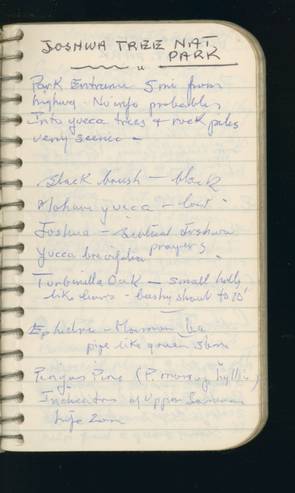 JOSHUA TREE NAT.
PARK
Park Entrance 5 mi from
highway. No info probables
into yucca trees + rock piles
very scenic -
brush - black
Mohave yucca - low
Joshua -
prayers
Yucca brevifolia
Turbinella Oak - small holly
like leaves - bushy shrub to 15'
Ephedra - Mormon tea
pipe like green stems
Pinyon Pine (P. monophylla)
Indicators of Upper Sonoran
life Zone